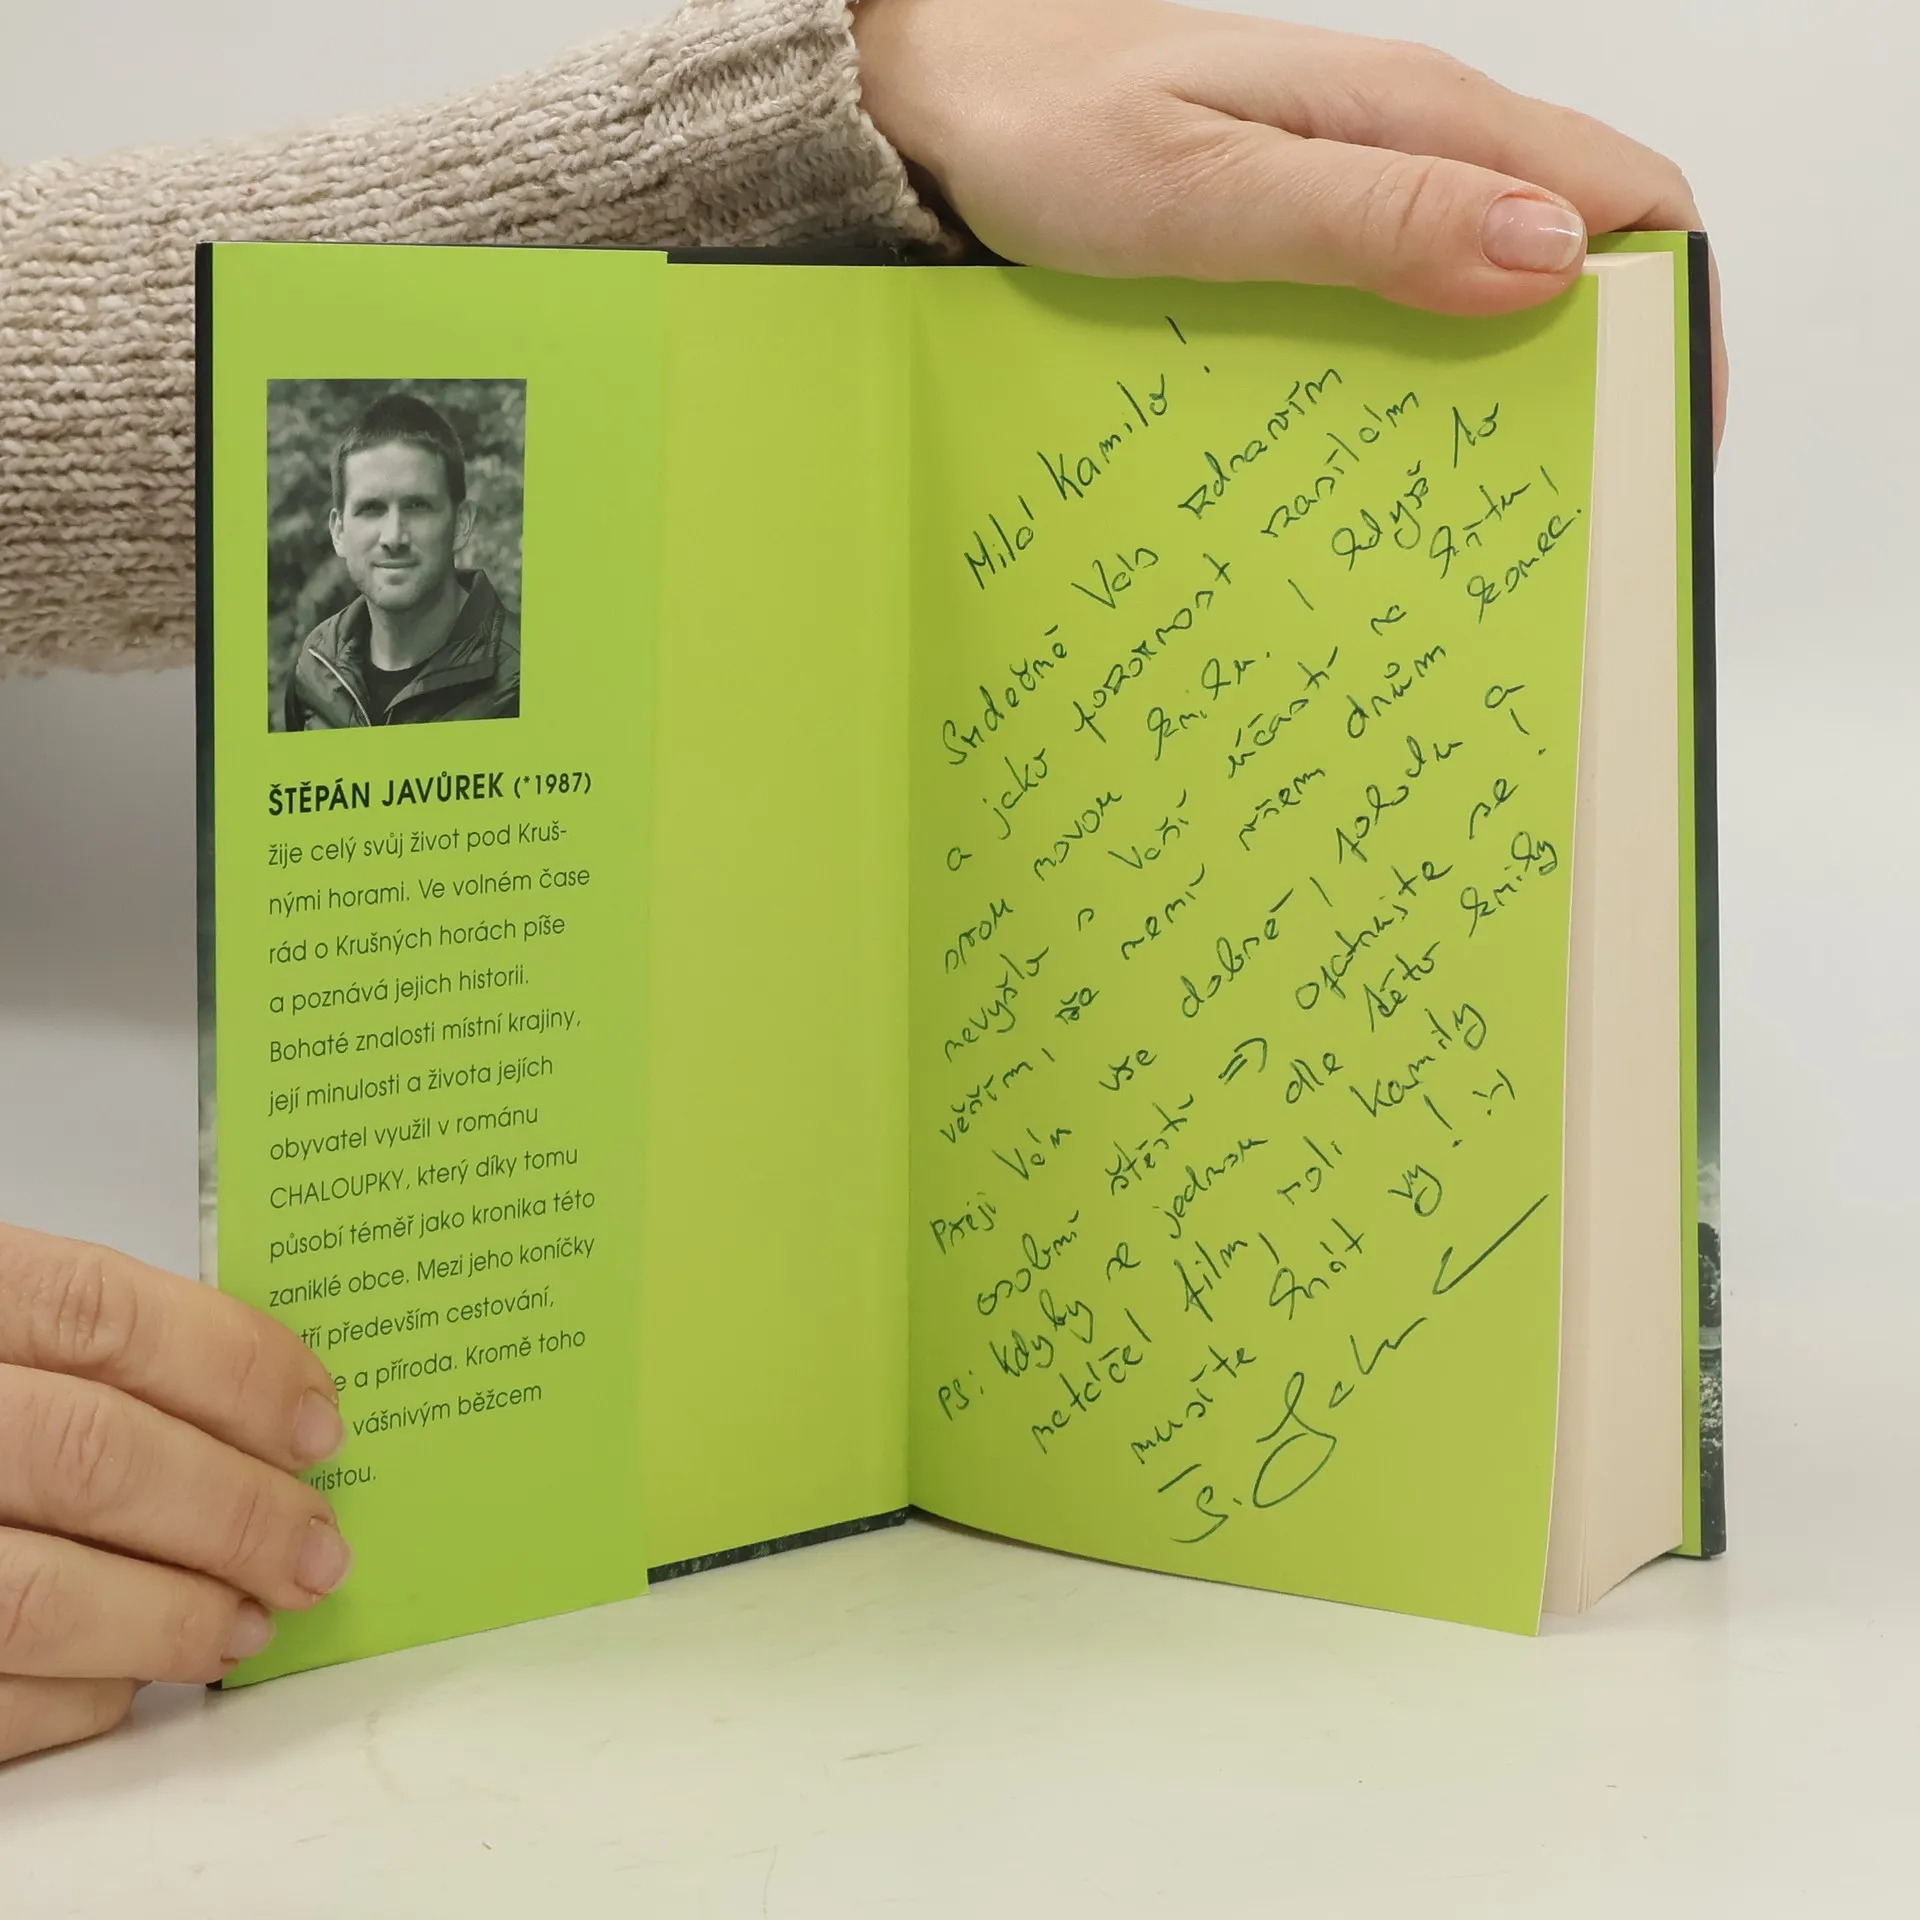 ŠTĚPÁN JAVŮREK (*1987)
žije celý svůj život pod Kruš-
nými horami. Ve volném čase
rád o Krušných horách píše
a poznává jejich historii.
Bohaté znalosti místní krajiny,
její minulosti a života jejích
obyvatel využil v románu
CHALOUPKY, který díky tomu
působí téměř jako kronika této
zaniklé obce. Mezi jeho koníčky
tří především cestování,
e a příroda. Kromě toho
vášnivým běžcem
uristou.
Milá Kamilo!
Srdečně Vás zdravím
a jako pozornost zasílám
svou novou knihu. I když to
nevyšlo s Vaší účastí na křtu,
věřím, že není všem dnům konec.
Přeji Vám vše dobré, pohodu a
osobní štěstí => opatrujte se!
PS: Kdyby se jednou dle této knihy
natáčel film, roli Kamily
musíte hrát vy! :-)